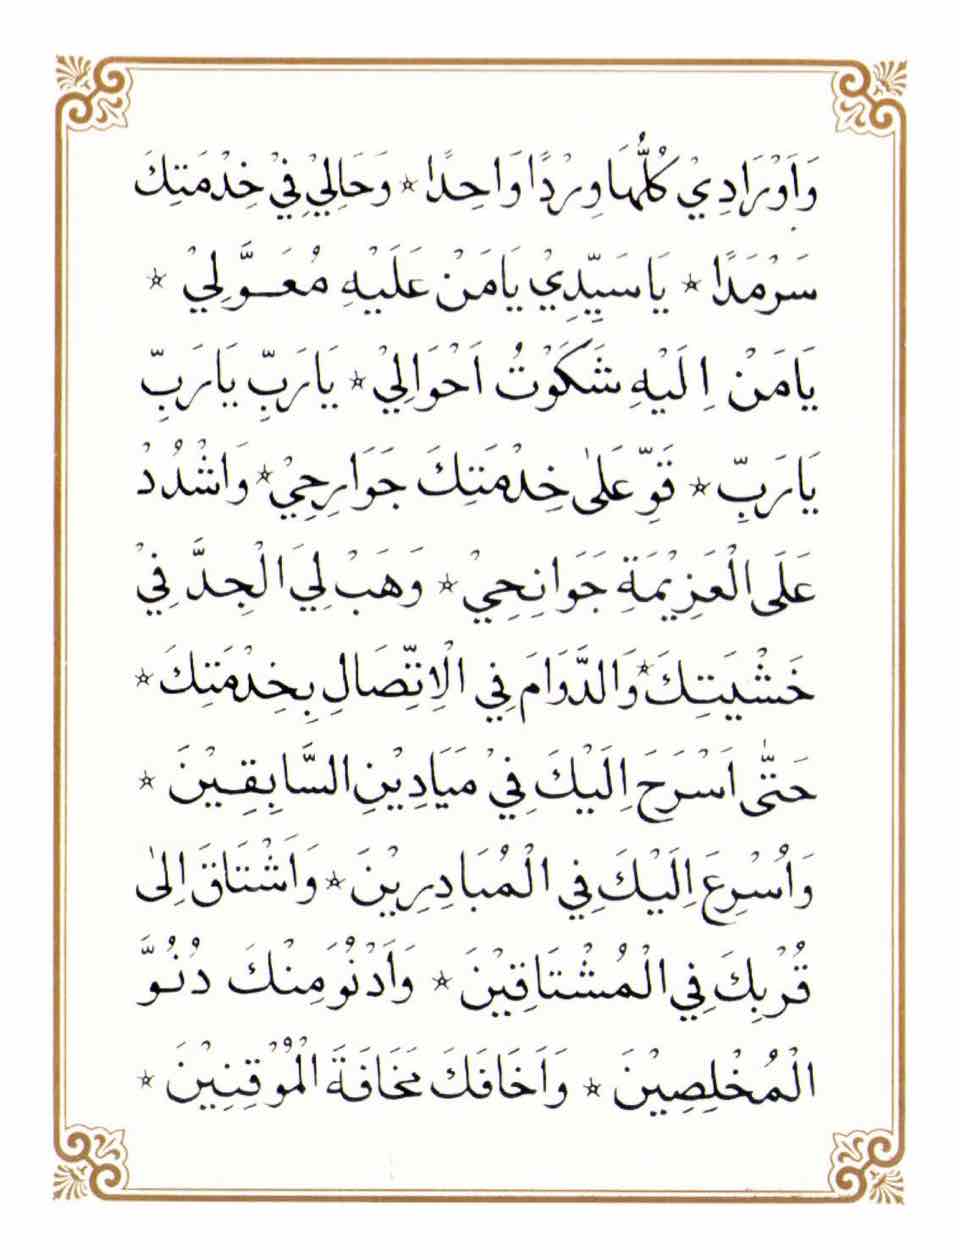 وَاَوْرَادِيْ كُلُّهَا وِرْدًا وَاحِدًا ٭ وَحَالِيْ فِيْ خِدْمَتِكَ
سَرْمَدًا ٭ يَا سَيِّدِيْ يَامَنْ عَلَيْهِ مُعَوَّلِيْ ٭
يَامَنْ اِلَيْهِ شَكَوْتُ اَحْوَالِيْ ٭ يَارَبِّ يَارَبِّ
يَارَبِّ ٭ قَوِّ عَلٰى خِدْمَتِكَ جَوَارِحِيْ ٭ وَاشْدُدْ
عَلَى الْعَزِيْمَةِ جَوَانِحِيْ ٭ وَهَبْ لِيَ الْجِدَّ فِيْ
خَشْيَتِكَ ٭ وَالدَّوَامَ فِي الْاِتِّصَالِ بِخِدْمَتِكَ ٭
حَتّٰى اَسْرَحَ اِلَيْكَ فِيْ مَيَادِيْنِ السَّابِقِيْنَ ٭
وَاُسْرِعَ اِلَيْكَ فِي الْمُبَادِرِيْنَ ٭ وَاَشْتَاقَ اِلٰى
قُرْبِكَ فِي الْمُشْتَاقِيْنَ ٭ وَاَدْنُوَ مِنْكَ دُنُوَّ
الْمُخْلِصِيْنَ ٭ وَاَخَافَكَ مَخَافَةَ الْمُوْقِنِيْنَ ٭